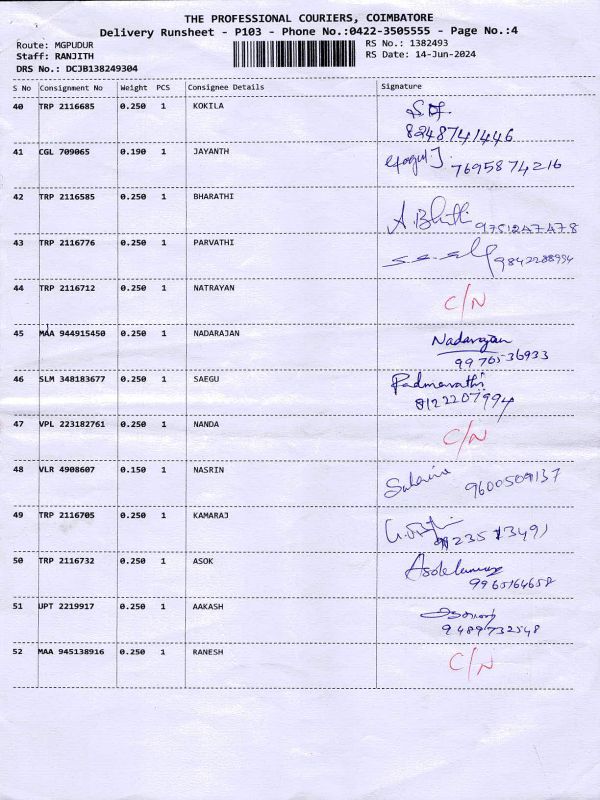 THE PROFESSIONAL COURIERS, COIMBATORE
Delivery Runsheet - P103 - Phone No.:0422-3505555 - Page No.:4
Route: MGPUDUR
RS No.: 1382493
Staff: RANJITH
RS Date: 14-Jun-2024
DRS No.: DCJB138249304
S No Consignment No Weight PCS Consignee Details Signature
40 TRP 2116685 0.250 1 KOKILA
8248741446
41 CGL 709065 0.190 1 JAYANTH
7695874216
42 TRP 2116585 0.250 1 BHARATHI
9751247478
43 TRP 2116776 0.250 1 PARVATHI
9842288994
44 TRP 2116712 0.250 1 NATRAYAN C/N
45 MAA 944915450 0.250 1 NADARAJAN Nadarajan
9970536933
46 SLM 348183677 0.250 1 SAEGU Padmavathi
8122207994
47 VPL 223182761 0.250 1 NANDA C/N
48 VLR 4908607 0.150 1 NASRIN
9600509137
49 TRP 2116705 0.250 1 KAMARAJ
50 TRP 2116732 0.250 1 ASOK
9965164658
51 UPT 2219917 0.250 1 AAKASH
9489732548
52 MAA 945138916 0.250 1 RANESH C/N